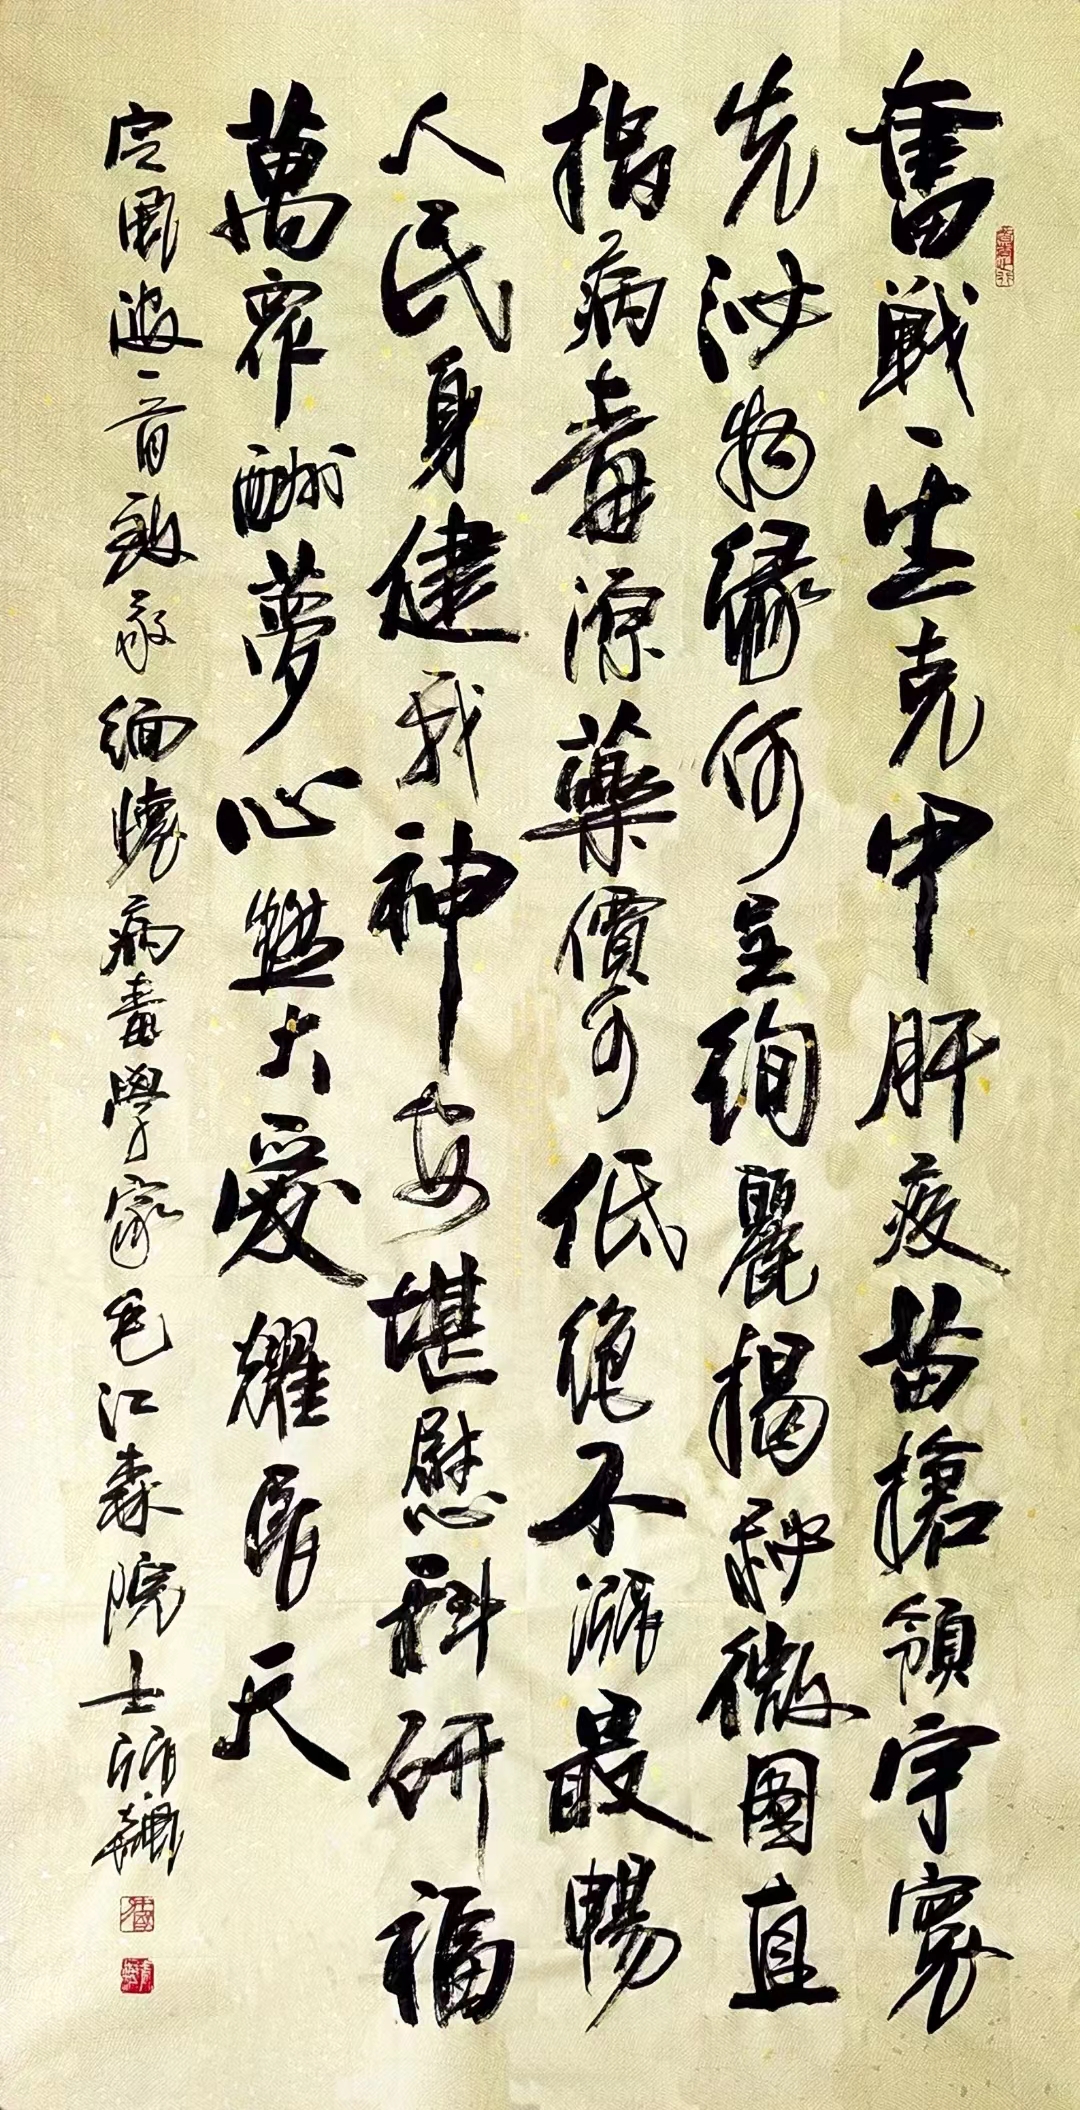 奮戰一生克甲肝疫苗搶領宇寰
先物緣何呈絢麗揭秘微圖直
指病毒源藥價可低絕不漲最暢
人民身健我神安堪慰科研福
萬眾酬夢心大愛耀天
定風波一首敬緬懷病毒學家毛江森院士